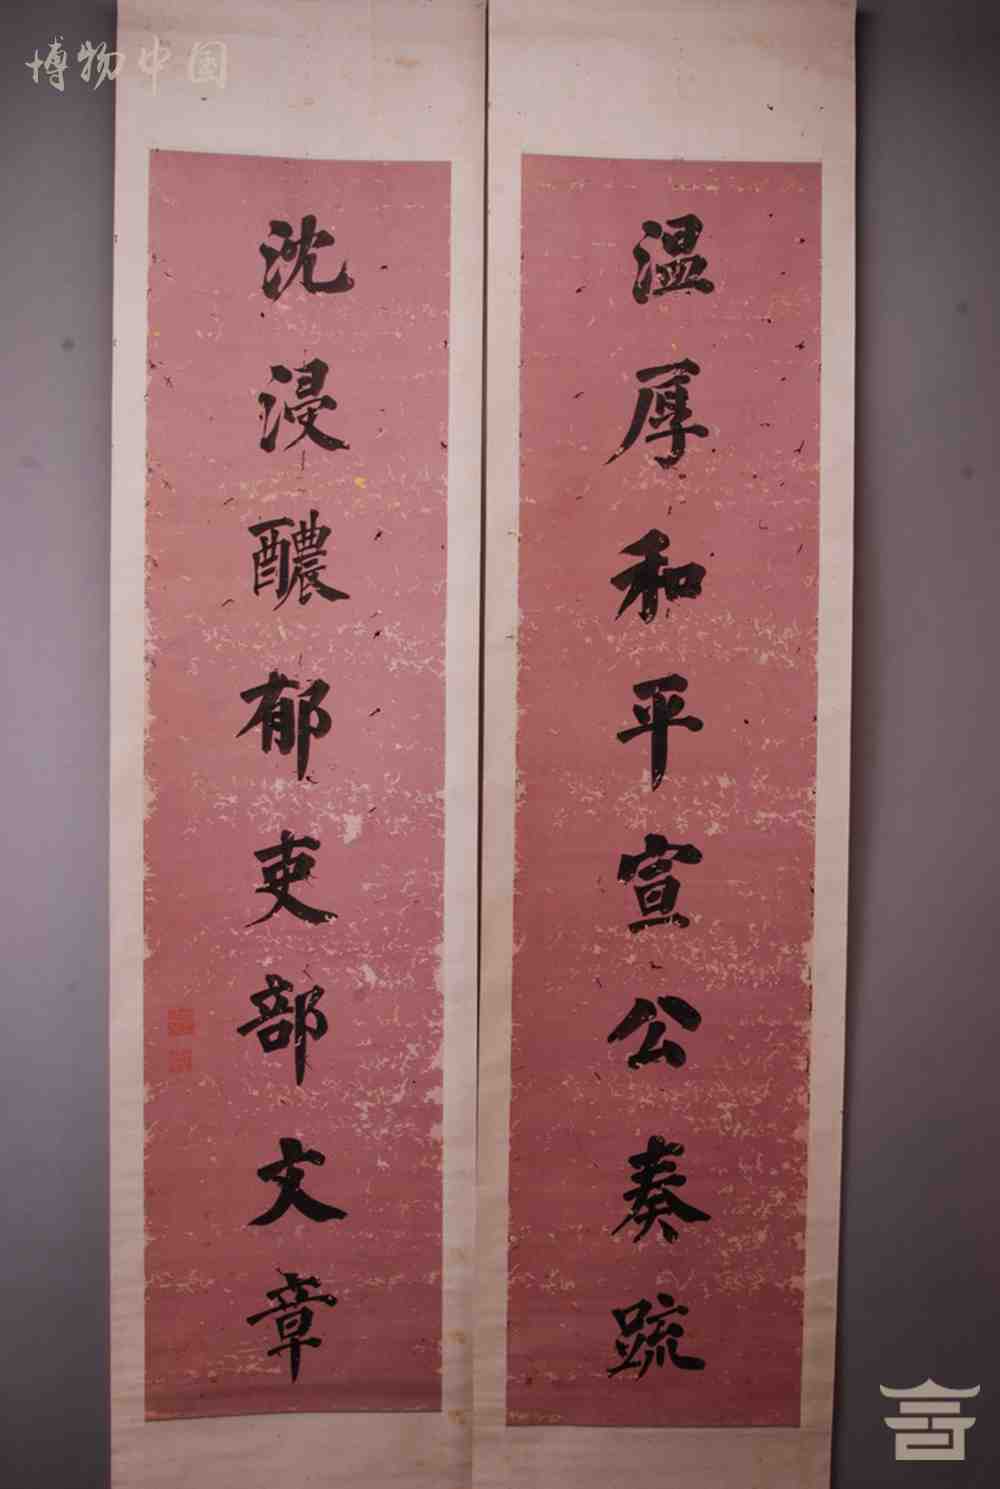 博物中国
温厚和平宣公奏疏
沈浸醲郁吏部文章